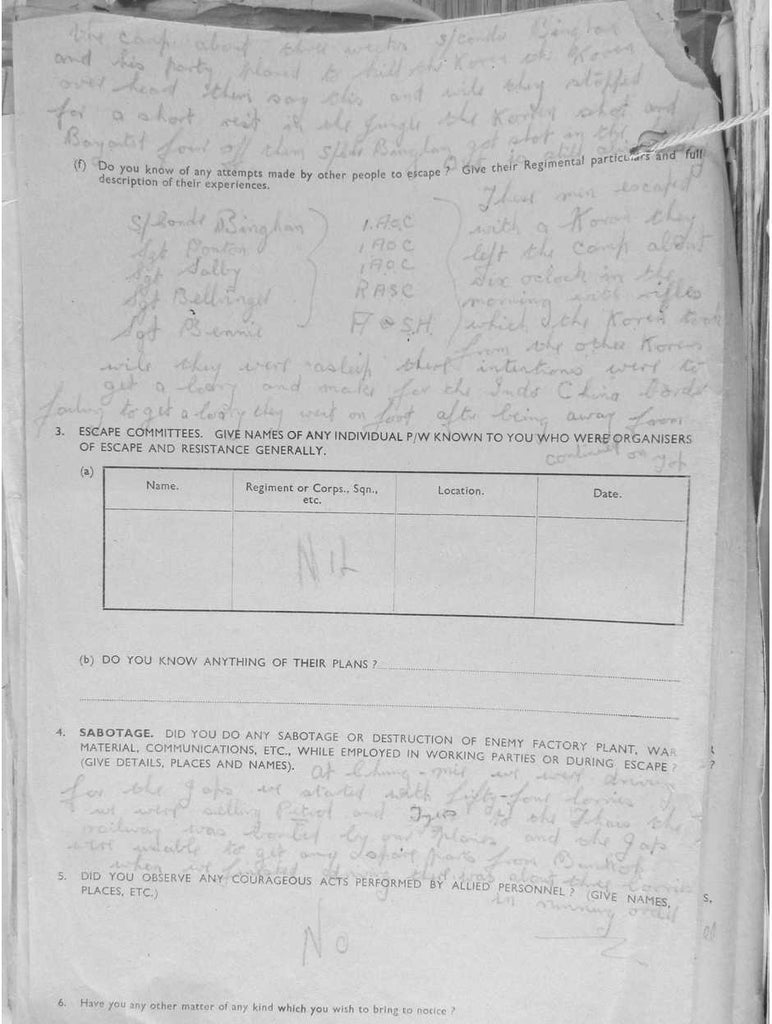 the camp about three weeks S/Condr Bingham
and his party planed to kill the Korea the Korea
over head them say this and wile they stopped
for a short rest in the jungle the Korea shot and
Bayonet four off them S/Condr Bingham got shot in the
still
(f) Do you know of any attempts made by other people to escape ? Give their Regimental particulars and full
description of their experiences.
S/Condr Binghan } I.AOC { These men escaped
Sgt IAOC with a Korea they
Sgt Salby IAOC left the camp about
Sgt Bellinger RASC six oclock in the
Sgt Bennie A @ S.H. morning with rifles
which the Korea took
from the other Koreas
wile they were asleep there intentions were to
get a lorry and make for the Indo China border
failing to get a lorry they went on foot after being away from
continued on top
3. ESCAPE COMMITTEES. GIVE NAMES OF ANY INDIVIDUAL P/W KNOWN TO YOU WHO WERE ORGANISERS
OF ESCAPE AND RESISTANCE GENERALLY.
(a)
Name. Regiment or Corps., Sqn., etc. Location. Date.
NIL
(b) DO YOU KNOW ANYTHING OF THEIR PLANS ?
4. SABOTAGE. DID YOU DO ANY SABOTAGE OR DESTRUCTION OF ENEMY FACTORY PLANT, WAR
MATERIAL, COMMUNICATIONS, ETC., WHILE EMPLOYED IN WORKING PARTIES OR DURING ESCAPE ?
(GIVE DETAILS, PLACES AND NAMES). At we were driving
for the Japs we started with fifty-four lorries
we were selling Petrol and Tyres to the Thais the
railway was bombed by our planes and the Japs
were unable to get any spare parts from Bankok
when we finished driving there was about three lorries
in running order
5. DID YOU OBSERVE ANY COURAGEOUS ACTS PERFORMED BY ALLIED PERSONNEL ? (GIVE NAMES,
PLACES, ETC.)
No
6. Have you any other matter of any kind which you wish to bring to notice ?